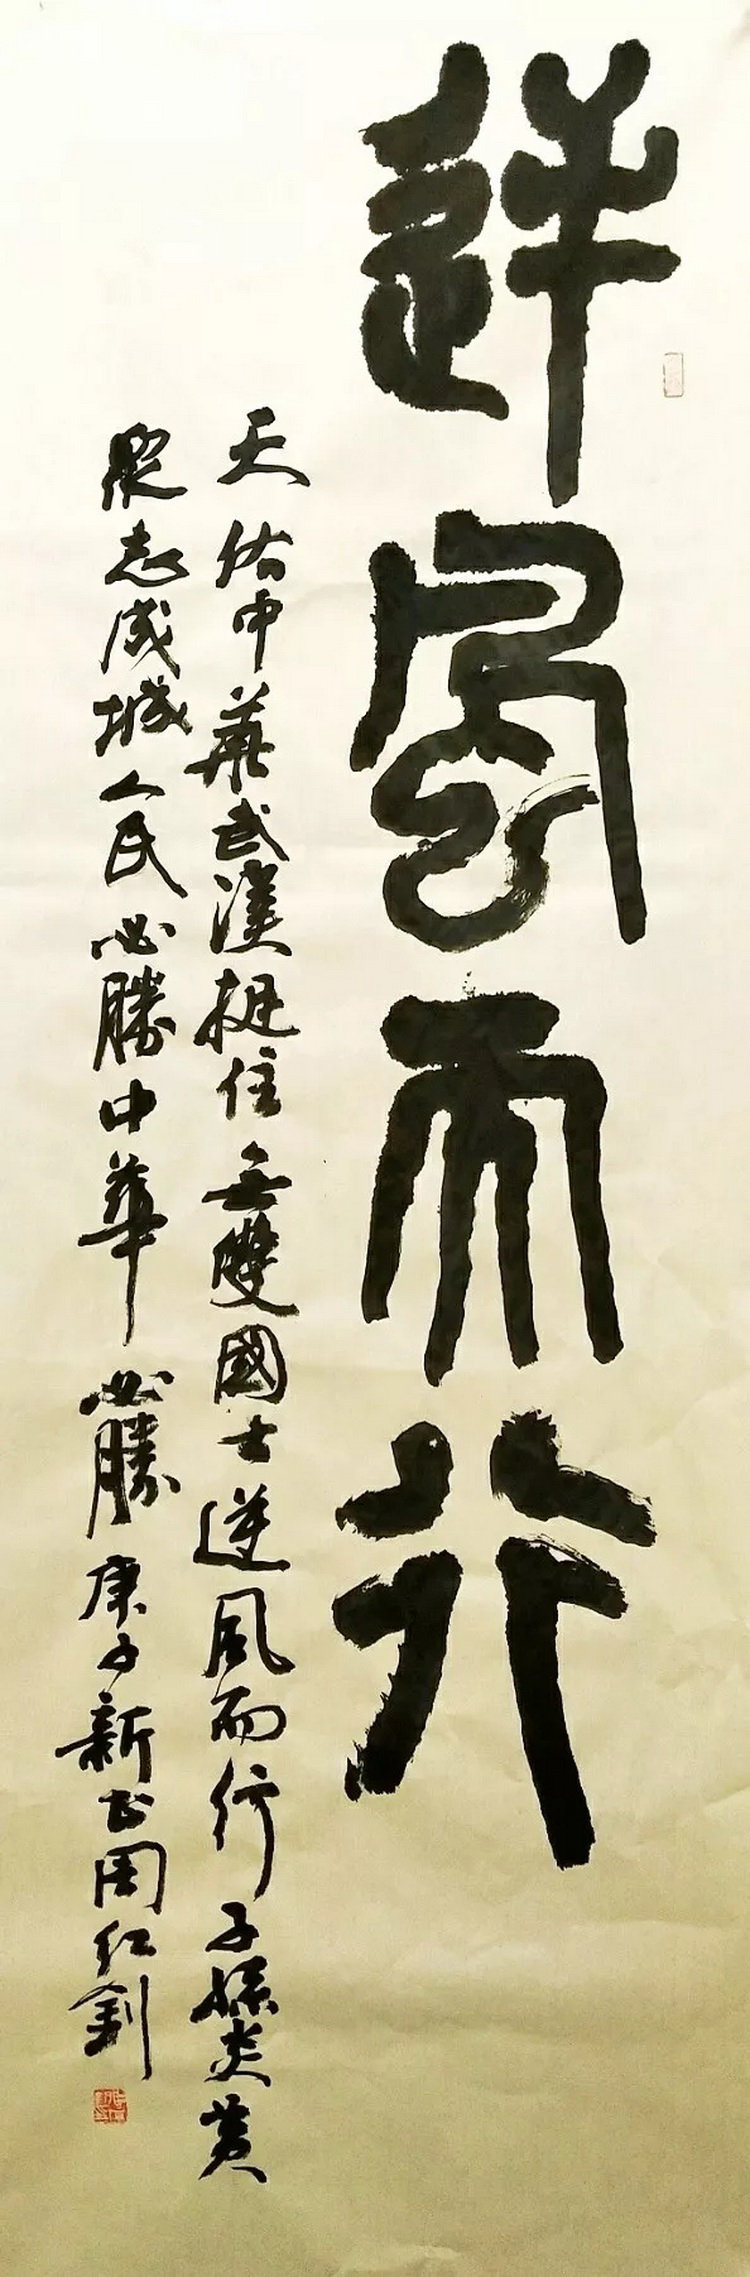 逆風而行
天佑中華武漢挺住無雙國士逆風而行子孫炎黃
眾志成城人民必勝中華必勝庚子新書周紅釗